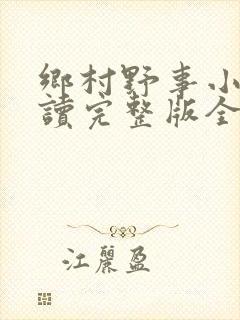 鄉村野事小
讀完整版全
江麗盈